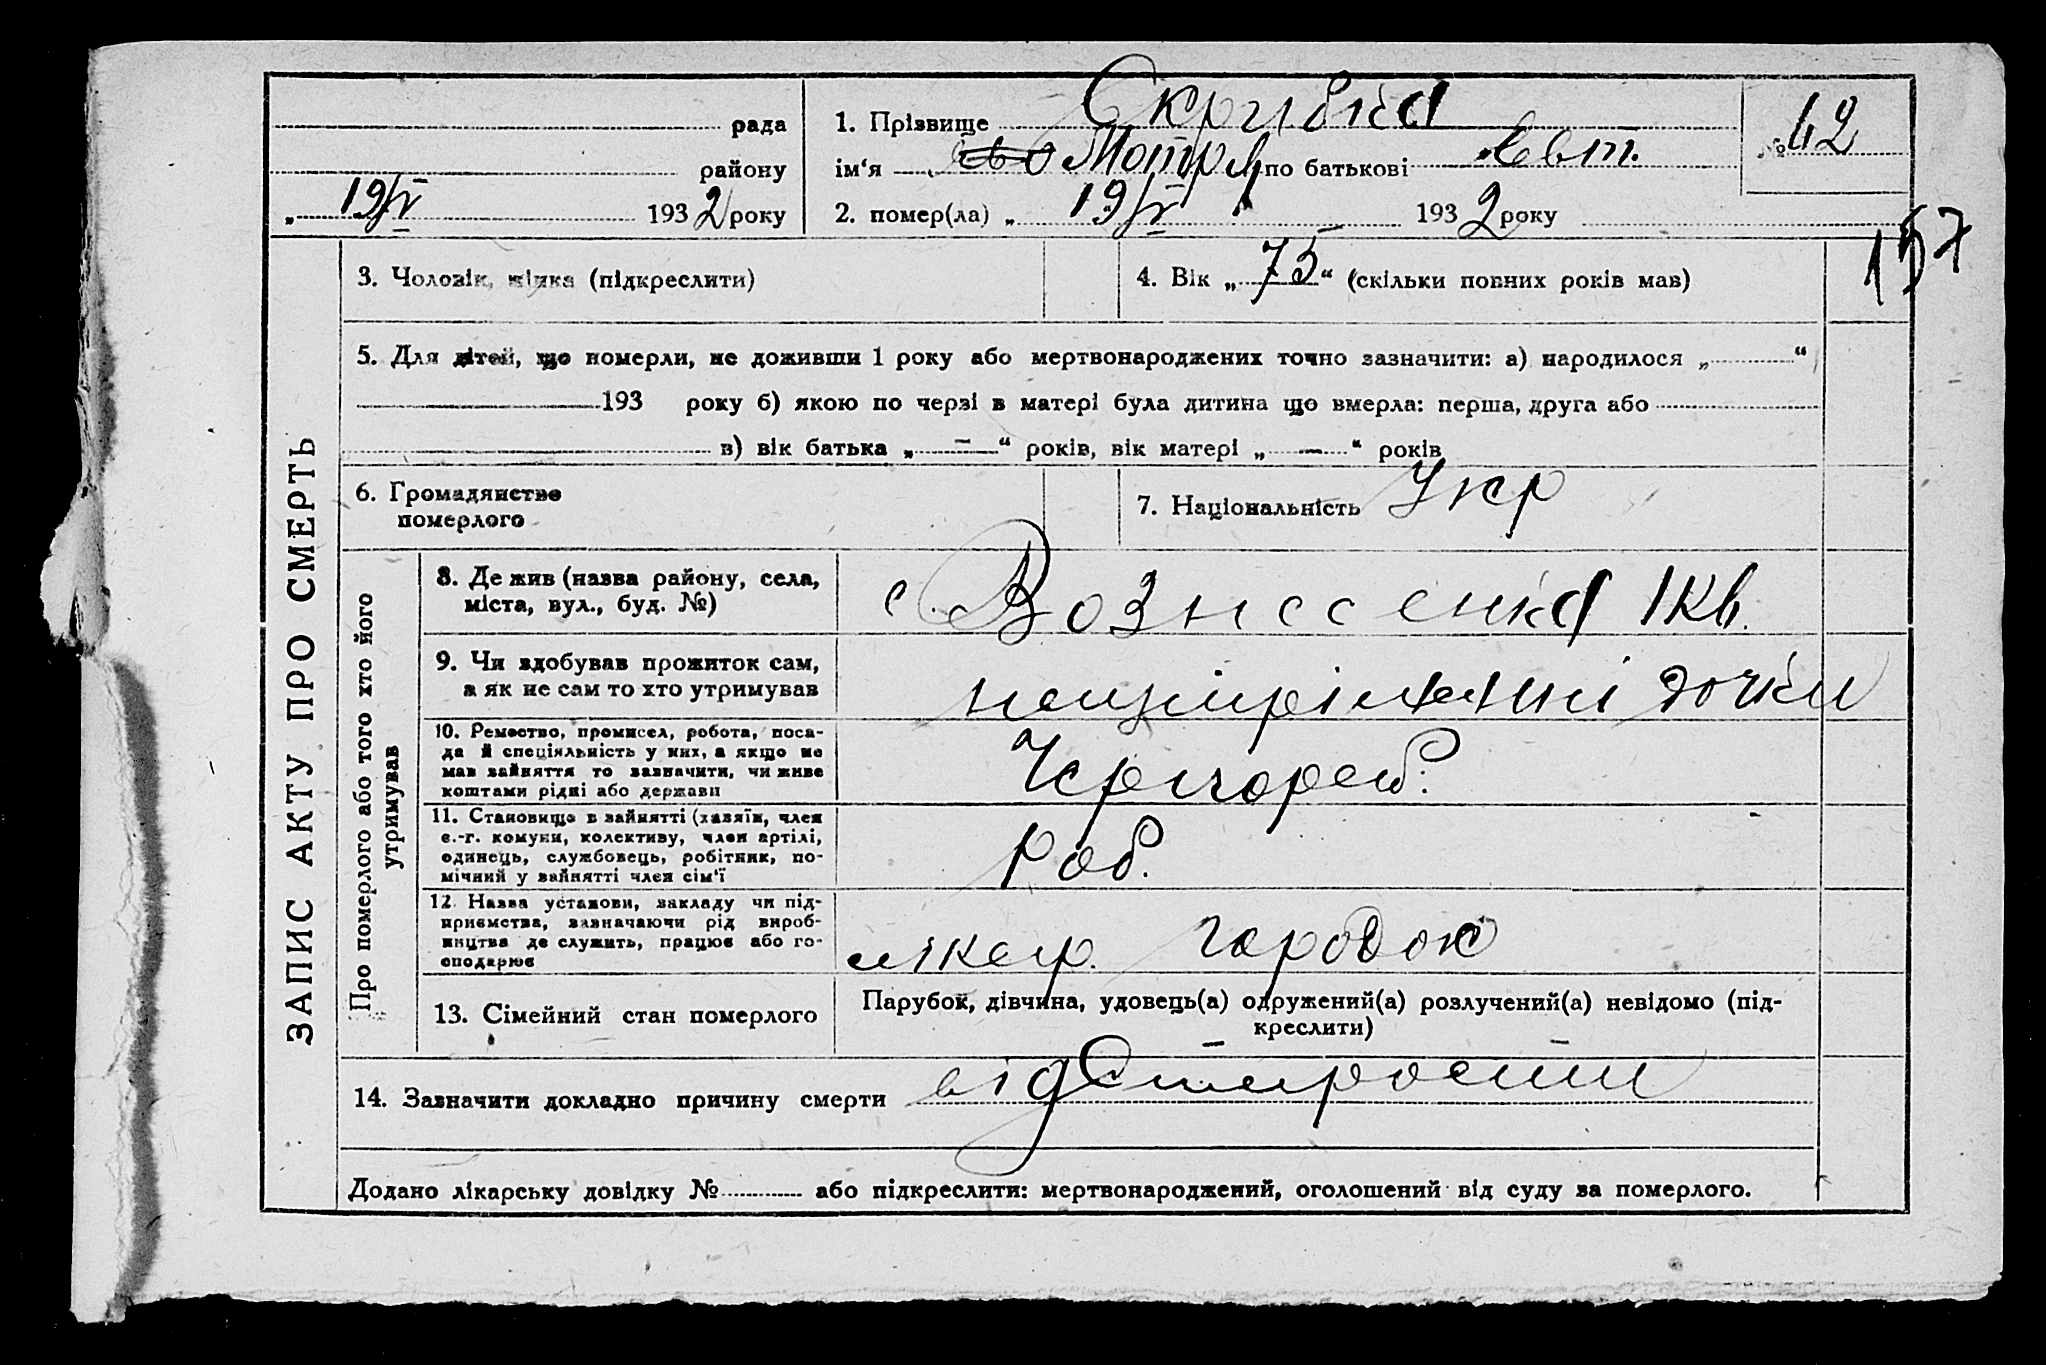 рада
району
„ 19/IV 1932 року
1. Прізвище Скрибка
ім‘я Мотря по батькові Євт.
2. помер(ла) „ 19/IV 1932 року
№ 42
157
ЗАПИС АКТУ ПРО СМЕРТЬ
3. Чоловік, жінка (підкреслити)
4. Вік „ 75 “ (скільки повних років мав)
5. Для дітей, що померли, не доживши 1 року або мертвонароджених точно зазначити: а) народилося „ “
193 року б) якою по черзі в матері була дитина що вмерла: перша, друга або
в) вік батька „ — “ років, вік матері „ — “ років
6. Громадянство
померлого
7. Національність Укр
Про померлого або того хто його
утримував
8. Де жив (назва району, села,
міста, вул., буд. №)
с. Вознесенка 1 кв.
9. Чи здобував прожиток сам,
а як не сам то хто утримував
на утриманні дочки
10. Ремество, промисел, робота, поса-
да й спеціяльність у них, а якщо не
мав зайняття то зазначити, чи живе
коштами рідні або держави
Чорнороб.
11. Становище в зайнятті (хазяїн, член
с.-г. комуни, колективу, член артілі,
одинець, службовець, робітник, по-
мічний у зайнятті член сім‘ї
Роб.
12. Назва установи, закладу чи під-
приємства, зазначаючи рід вироб-
ництва де служить, працює або го-
сподарює
городок
13. Сімейний стан померлого
Парубок, дівчина, удовець(а) одружений(а) розлучений(а) невідомо (під-
креслити)
14. Зазначити докладно причину смерти від старости
Додано лікарську довідку № або підкреслити: мертвонароджений, оголошений від суду за померлого.